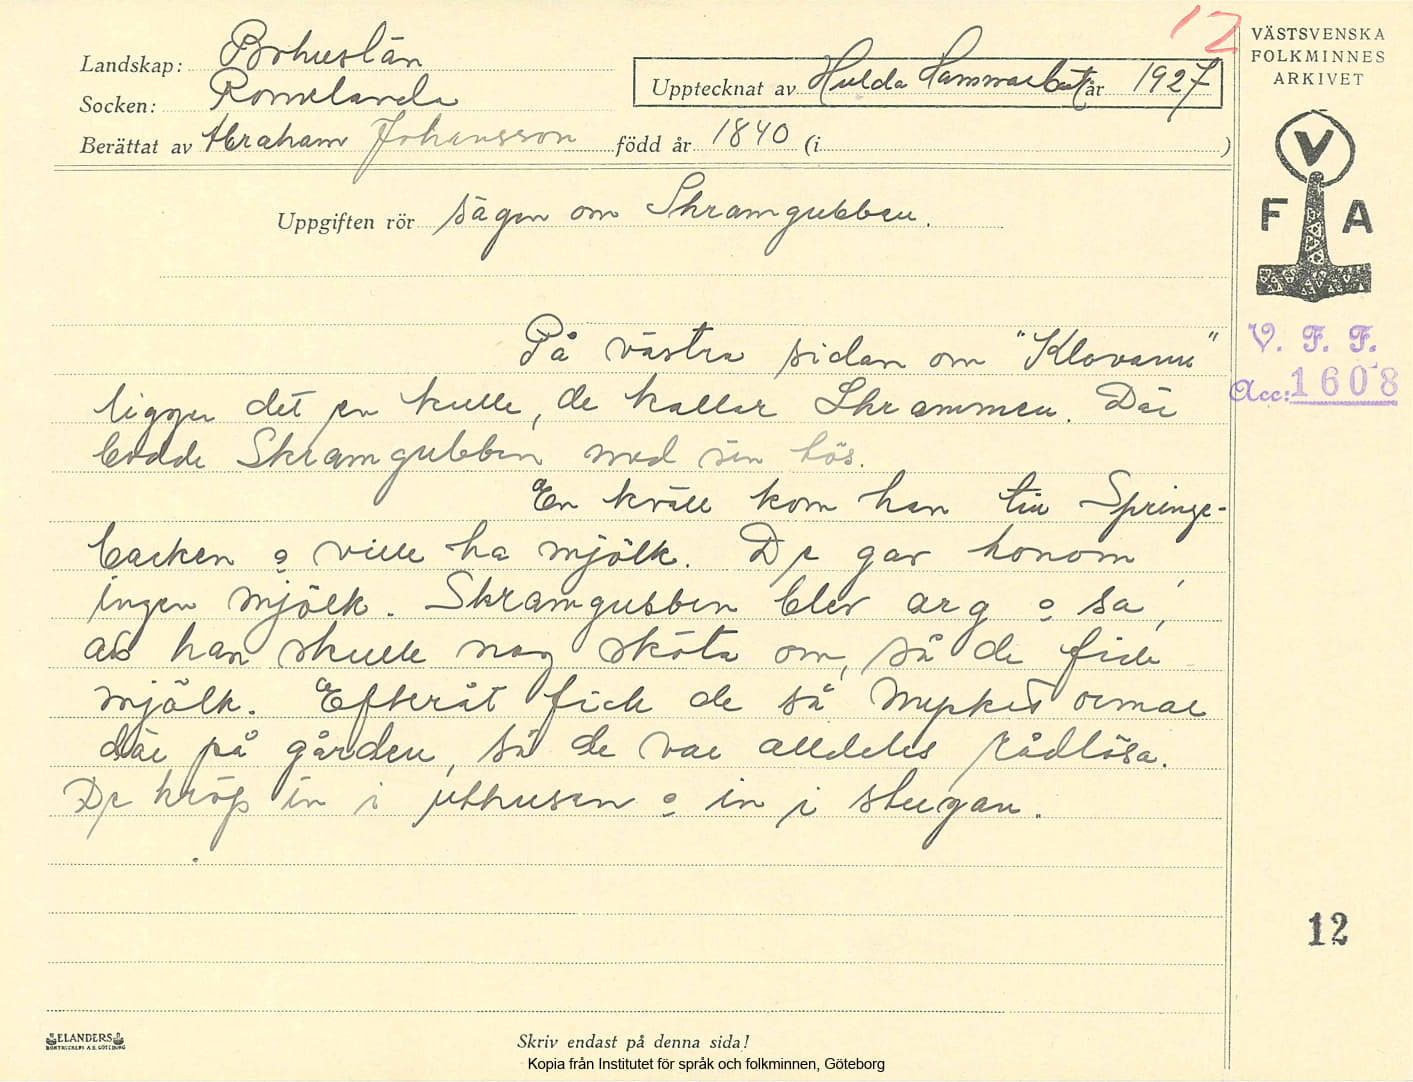 12
VÄSTSVENSKA
FOLKMINNES
ARKIVET
Landskap: Bohuslän
Socken: Romelanda
Upptecknat av Hulda Hammarbäck år 1927
Berättat av Abraham Johansson född år 1840 (i )
V
F A
Uppgiften rör sägen om Skramgubben.
V. F. F.
Acc: 1608
På västra sidan om "Klovarna"
ligger det en kulle, de kallar Skrammen. Där
bodde Skramgubben med sin tös.
En kväll kom han till Springe-
backen o ville ha mjölk. De gav honom
ingen mjölk. Skramgubben blev arg o sa,
att han skulle nog sköta om, så de fick
mjölk. Efteråt fick de så mycket ormar
där på gården, så de var alldeles rådlösa.
De kröp in i uthusen o in i stugan.
12
ELANDERS
BOKTRYCKERI A.B. GÖTEBORG
Skriv endast på denna sida!
Kopia från Institutet för språk och folkminnen, Göteborg